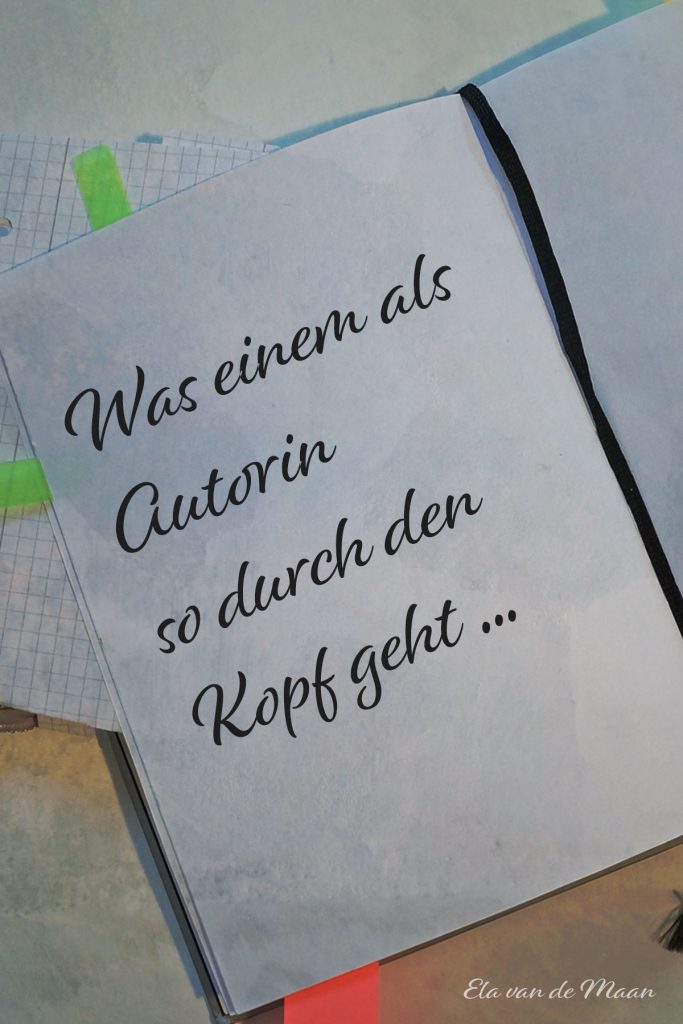 Was einem als
Autorin
so durch den
Kopf geht ...
Ela van de Maan